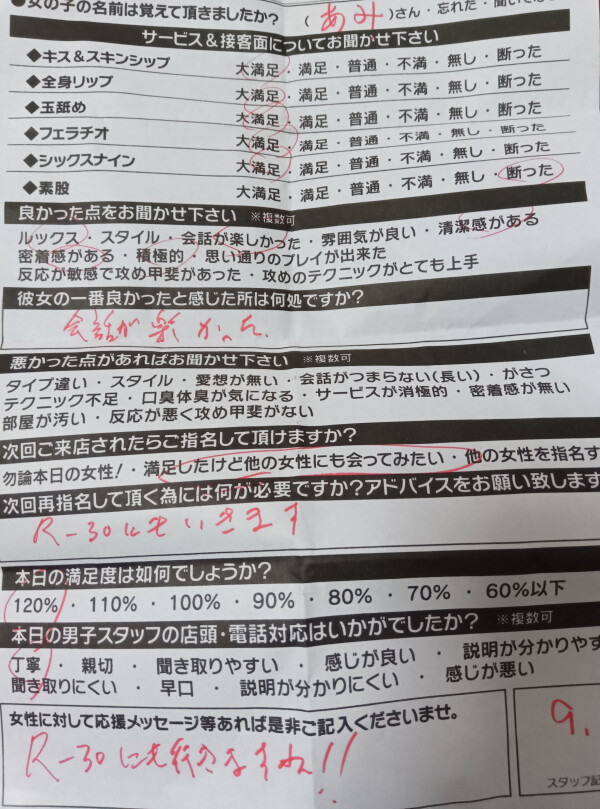 ●女の子の名前は覚えて頂きましたか? (あみ)さん・忘れた・聞いて
サービス&接客面についてお聞かせ下さい
◆キス&スキンシップ 大満足・満足・普通・不満・無し・断った
◆全身リップ 大満足・満足・普通・不満・無し・断った
◆玉舐め 大満足・満足・普通・不満・無し・断った
◆フェラチオ 大満足・満足・普通・不満・無し・断った
◆シックスナイン 大満足・満足・普通・不満・無し・断った
◆素股 大満足・満足・普通・不満・無し・断った
良かった点をお聞かせ下さい ※複数可
ルックス・スタイル・会話が楽しかった・雰囲気が良い・清潔感がある
密着感がある・積極的・思い通りのプレイが出来た
反応が敏感で攻め甲斐があった・攻めのテクニックがとても上手
彼女の一番良かったと感じた所は何処ですか?
会話が楽かった
悪かった点があればお聞かせ下さい ※複数可
タイプ違い・スタイル・愛想が無い・会話がつまらない(長い)・がさつ
テクニック不足・口臭体臭が気になる・サービスが消極的・密着感が無い
部屋が汚い・反応が悪く攻め甲斐がない
次回ご来店されたらご指名して頂けますか?
勿論本日の女性!・満足したけど他の女性にも会ってみたい・他の女性を指名す
次回再指名して頂く為には何が必要ですか?アドバイスをお願い致します
R-30にもいきます
本日の満足度は如何でしょうか?
120%・110%・100%・90%・80%・70%・60%以下
本日の男子スタッフの店頭・電話対応はいかがでしたか? ※複数可
丁寧・親切・聞き取りやすい・感じが良い・説明が分かりやす
聞き取りにくい・早口・説明が分かりにくい・感じが悪い
女性に対して応援メッセージ等あれば是非ご記入くださいませ。
R-30にも行きますね!!
9.
スタッフ記